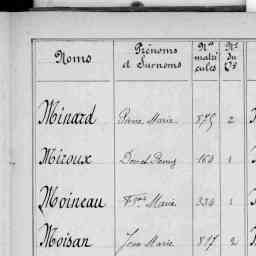 Noms Prénoms et Surnoms Nos matricules Nos du Cs
Minard Pierre Marie 875 2
Miroux 164 1
Moineau Fçois Marie 334 1
Moisan Jean Marie 817 2